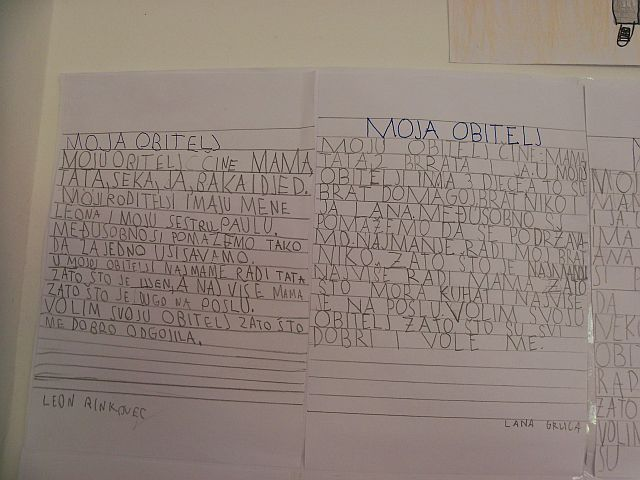 MOJA OBITELJ
MOJU OBITELJ ČINE MAMA,
TATA, SEKA, JA, BAKA I DJED.
MOJI RODITELJI IMAJU MENE
LEONA I MOJU SESTRU PAULU.
MEĐUSOBNO SI POMAŽEMO TAKO
DA ZAJEDNO USISAVAMO.
U MOJOJ OBITELJI NAJMANJE RADI TATA
ZATO ŠTO JE LIJEN, A NAJVIŠE MAMA
ZATO ŠTO JE DUGO NA POSLU.
VOLIM SVOJU OBITELJ ZATO ŠTO
ME DOBRO ODGOJILA.
LEON
MOJA OBITELJ
MOJU OBITELJ ČINE: MAMA
TATA 2 BRRATA I JA. U MOJOJ
OBITELJI IMA 3 DJECE A TO SU
BRAT DOMAGOJ BRAT NIKO I
JA LANA. MEĐUSOBNO SI
POMAŽEMO DA SE PODRŽAVA
MO. NAJMANJE RADI MOJ BRAT
NIKO. ZATO ŠTO JE NAJMANJI
NAJVIŠE RADI MAMA ZATO
ŠTO MORA KUHATI NAJVIŠE
JE NA POSLU. VOLIM SVOJU
OBITELJ ZATO ŠTO SU SVI
DOBRI I VOLE ME.
LANA